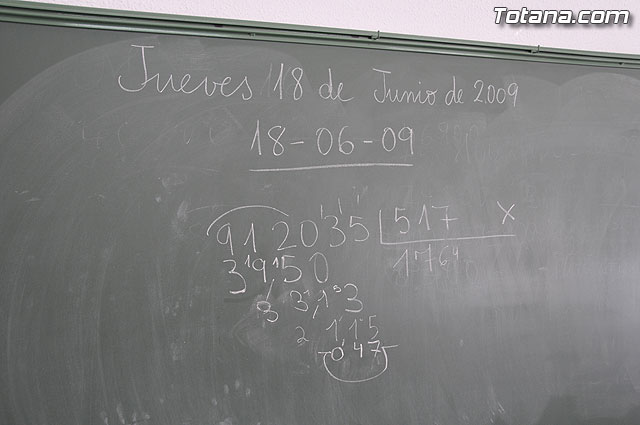 Totana.com
Jueves 18 de Junio de 2009
18-06-09
912035 517 x
3950 1764
3313
2115
047